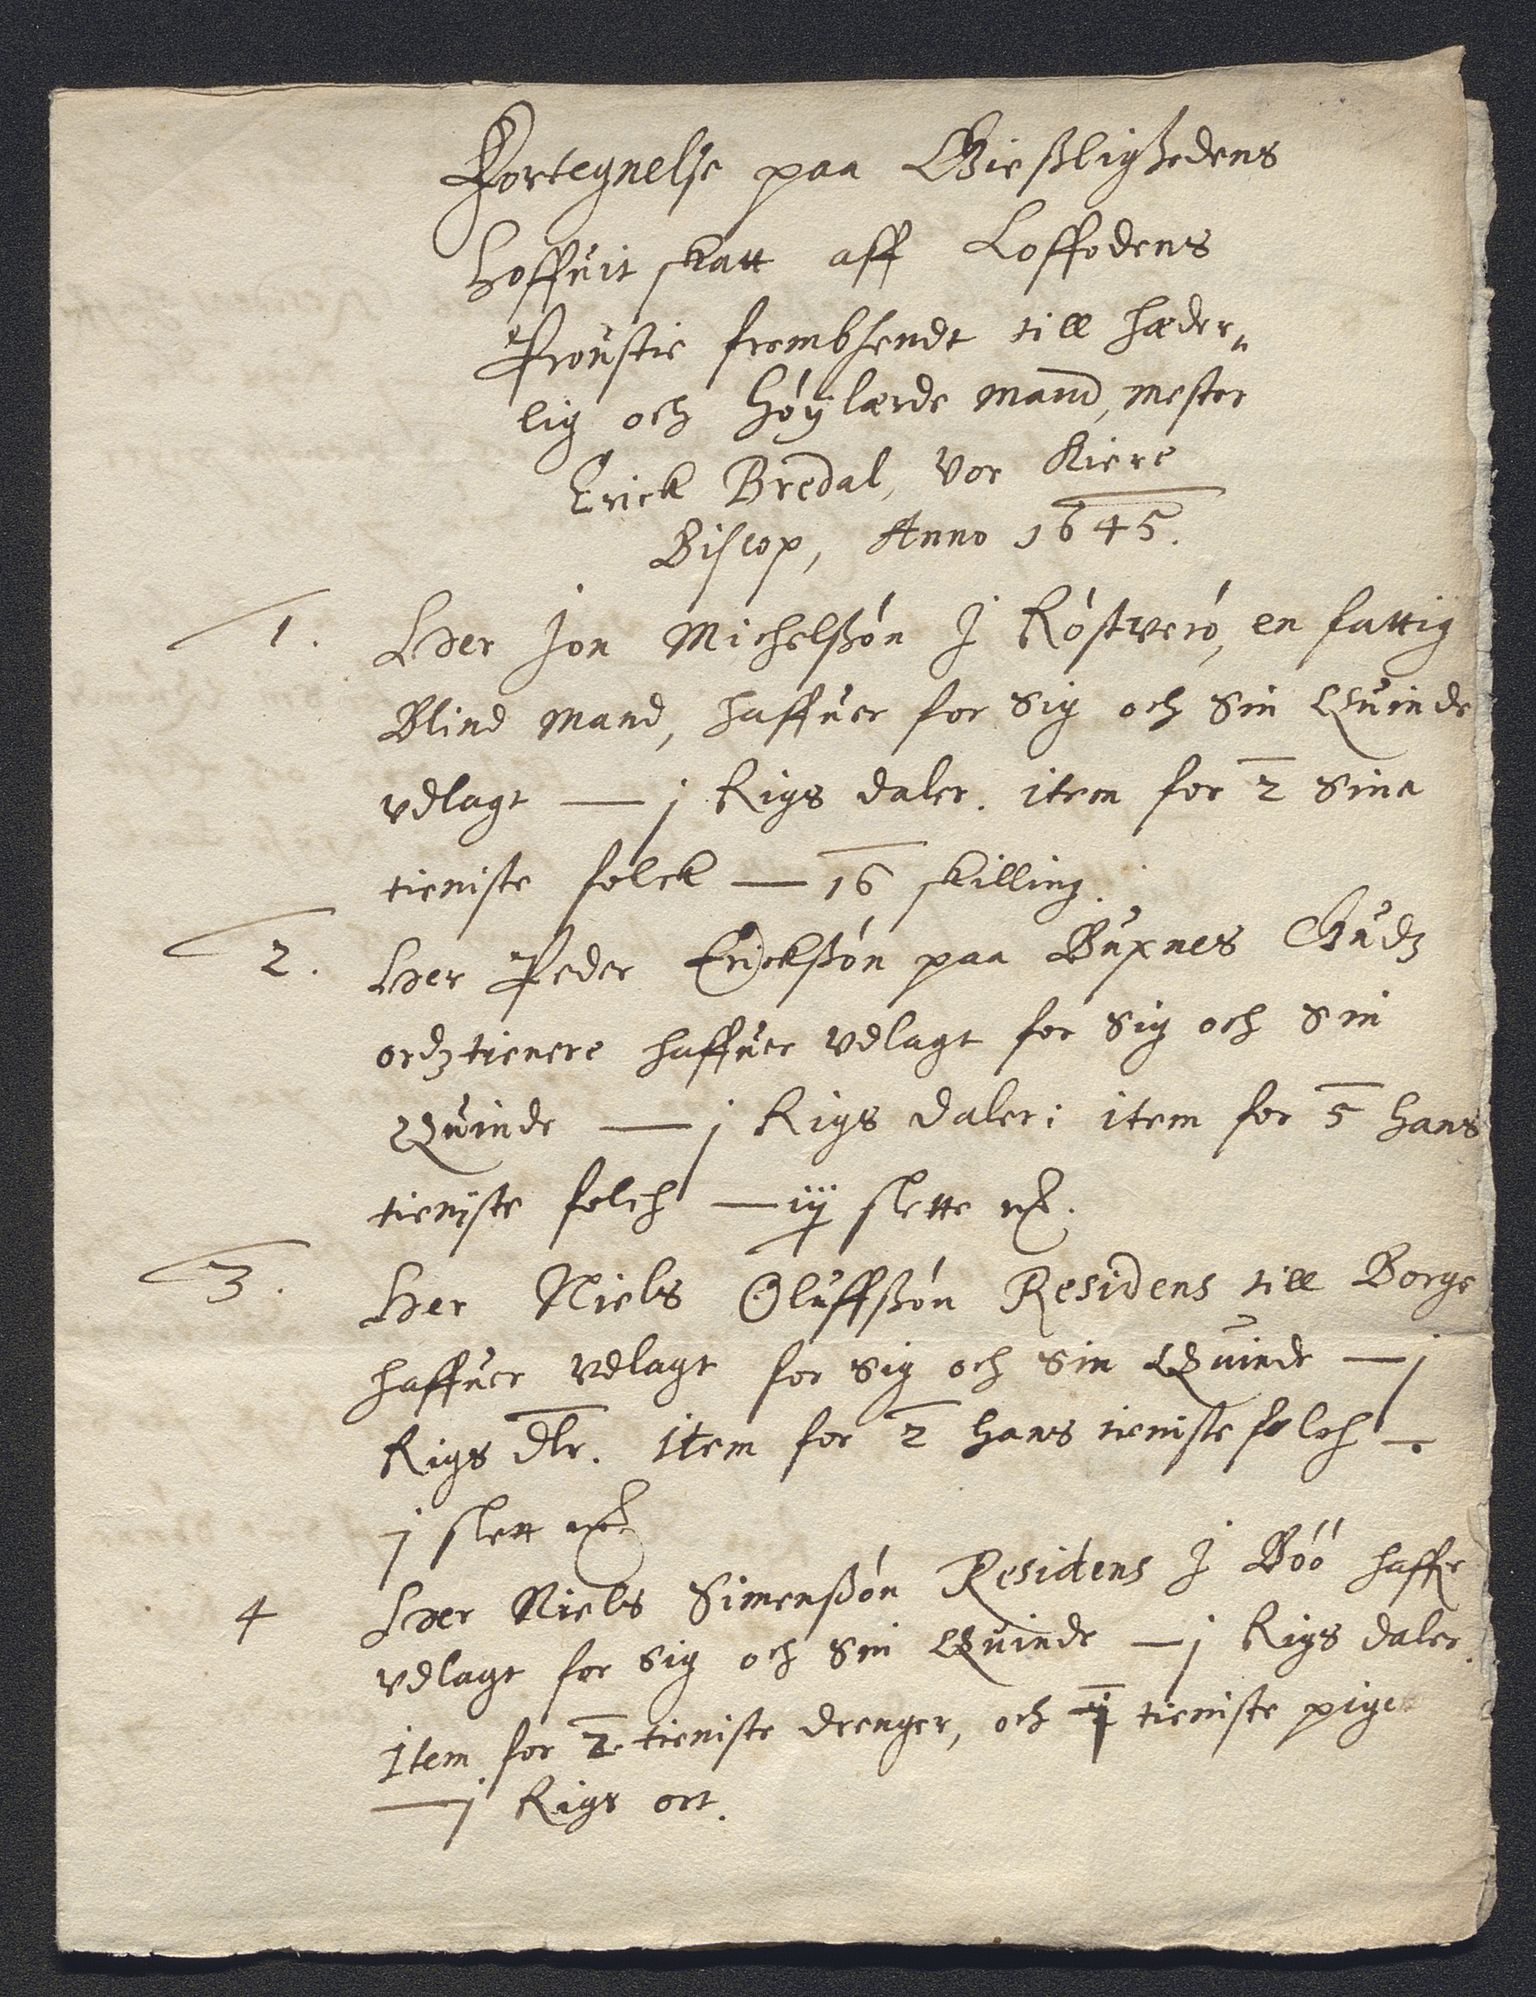 Fortegnelse paa Gieistlighedens
hoffuit skatt aff Loffodens
Proustie frembsendt till hæder„
lig och høÿlærde mand, mester
Erick Bredal, vor kiere
Biscop, Anno 1645.
1. Her Jon Michelssøn J Røstwerø, en fattig
Blind mand, haffuer for sig och sin Quinde
vdlagt — j Rigs daler. item for 2 sine
tieniste folck — 16 skilling.
2. Her Peder Erickssøn paa Buxnes Gudz
ordz tienere haffuer vdlagt for sig och sin
Quinde — j Rigs daler: item for 5 hans
tieniste folch — iij slette
3. Her Niels Oluffssøn Residens till Borge
haffuer vdlagt for sig och sin Quinde — j
Rigs dlr. Item for 2 hans tieniste folch —
j slett
4 Her Niels Simenssøn Residens J Bøø haffr
vdlagt for sig och sin Quinde — j Rigs daler.
Item for 2 tieniste drenger, och j tieniste pige
— j Rigs ort.